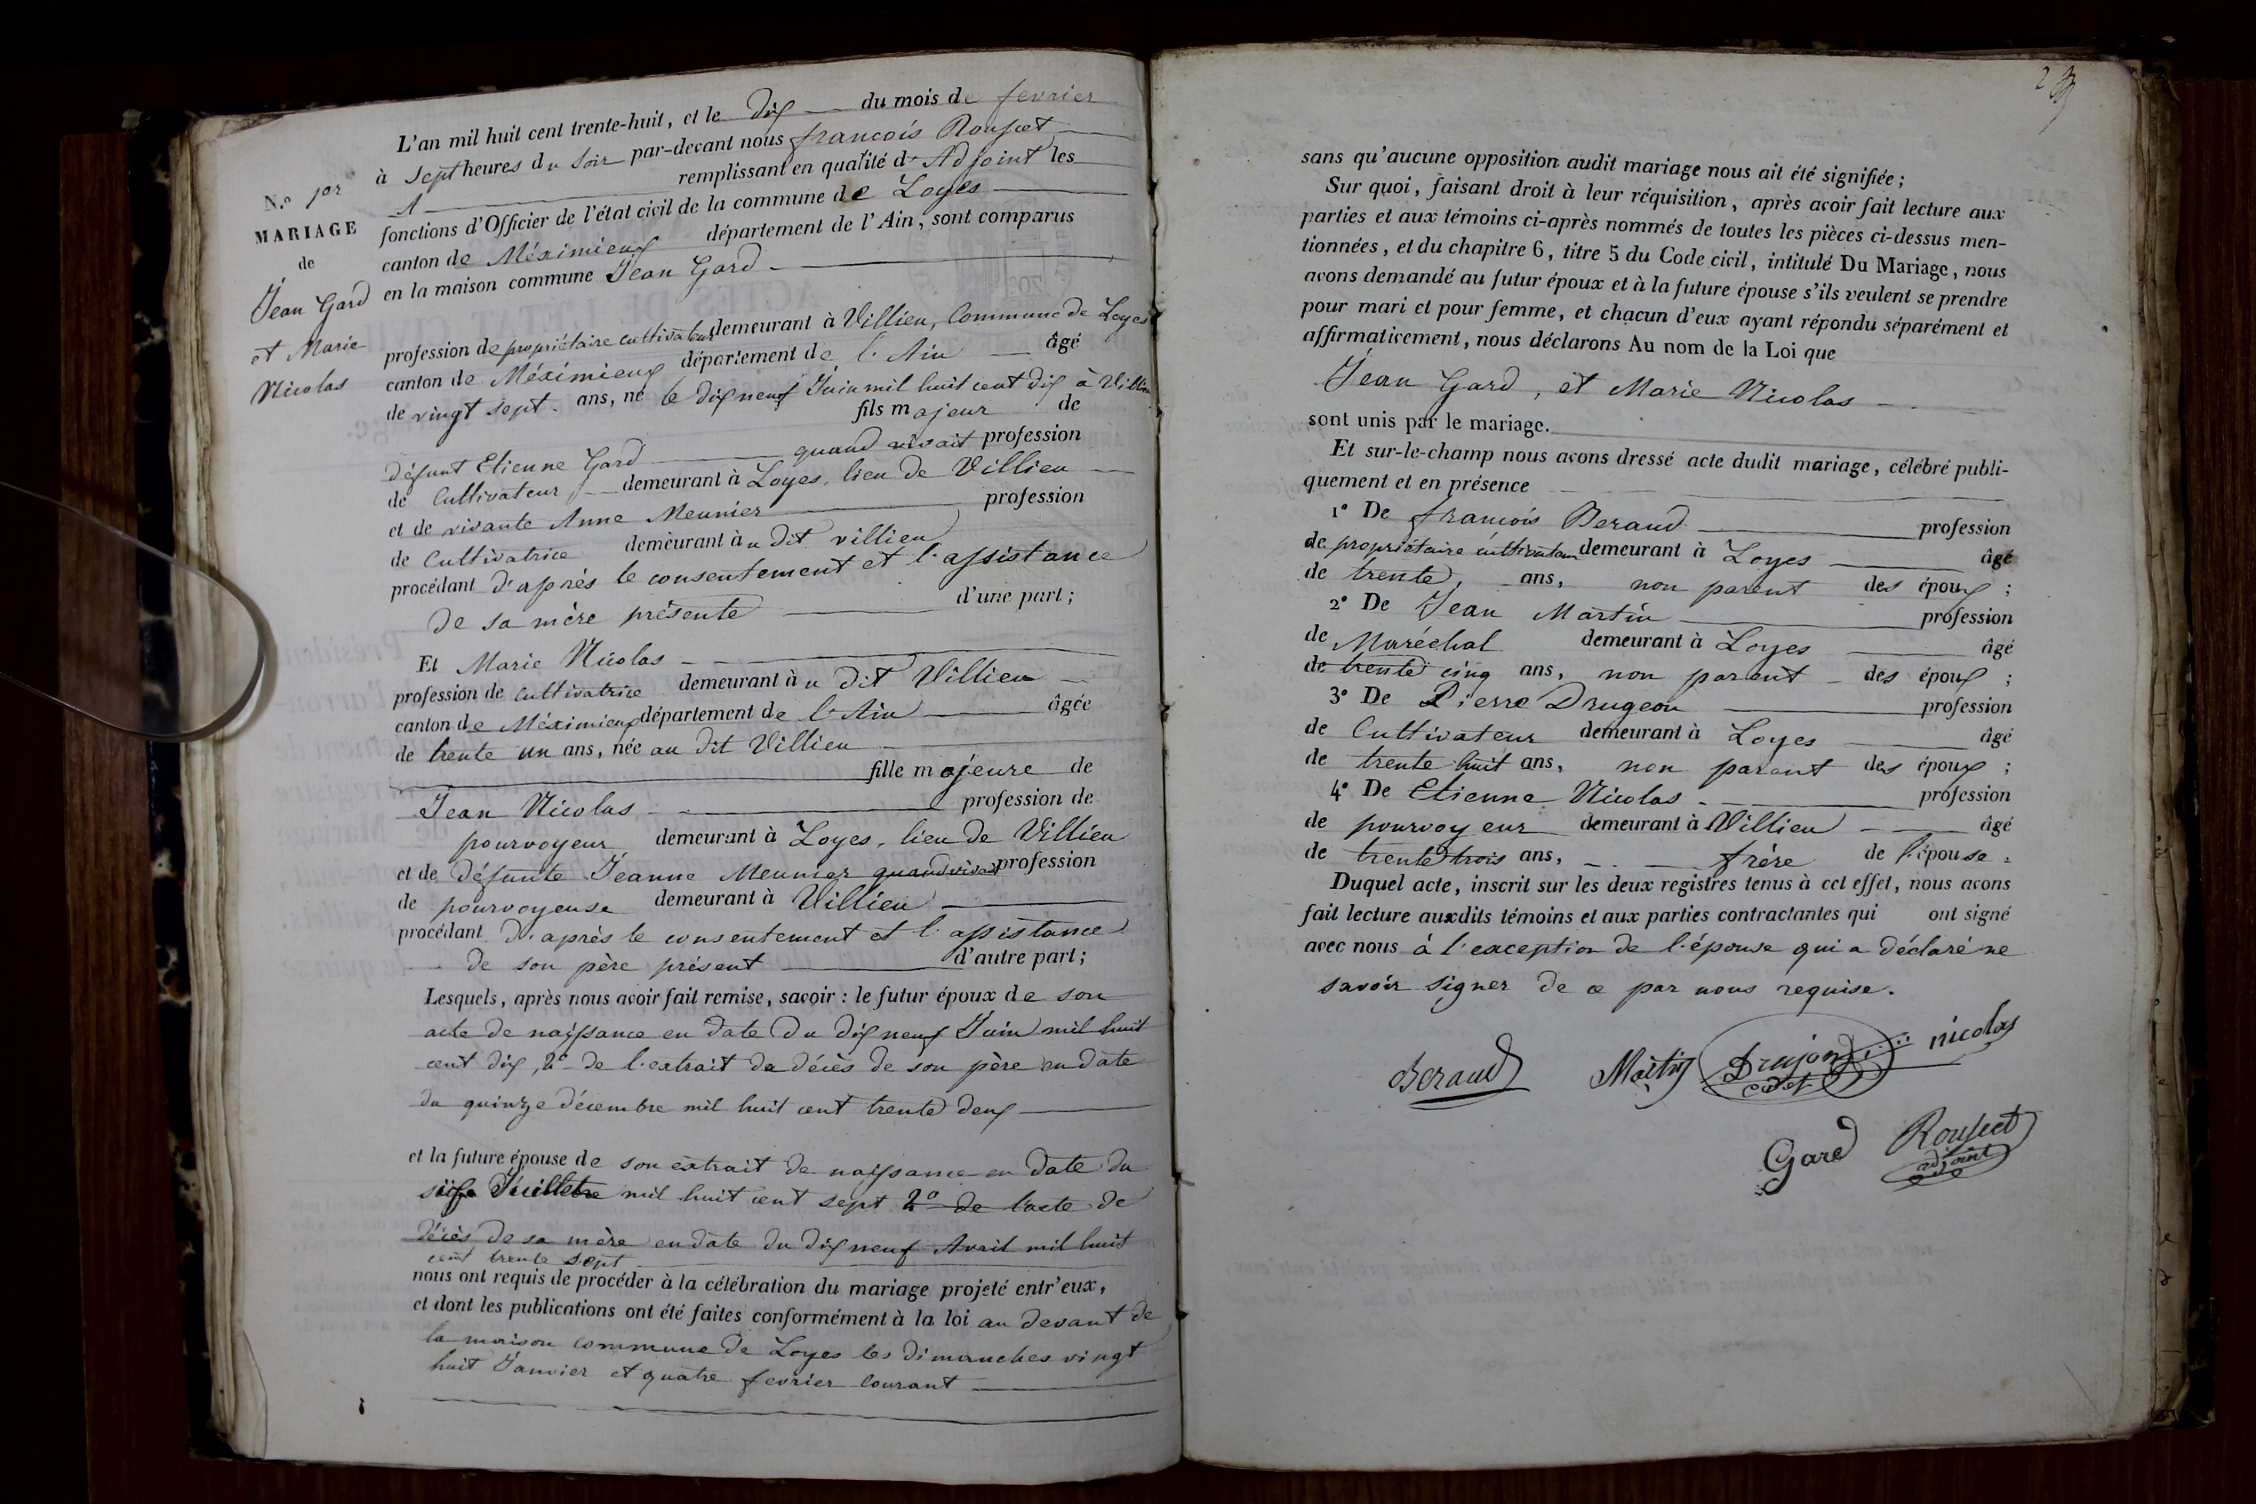 L'an mil huit cent trente-huit, et le dix du mois de fevrier
à sept heures du soir par-devant nous françois Rousset
remplissant en qualité d'Adjoint les
N.º 1er
MARIAGE
de
Jean Gard
et Marie
Nicolas
fonctions d'Officier de l'état civil de la commune de Loyes
canton de Méximieux département de l'Ain, sont comparus
en la maison commune Jean Gard
profession de propriétaire cultivateur demeurant à Villieu, Commune de Loyes
canton de Méximieux département de l'Ain âgé
de vingt sept ans, né le dix neuf Juin mil huit cent dix à Villieu
fils majeur de
défunt Etienne Gard quand vivait profession
de Cultivateur demeurant à Loyes, lieu de Villieu
et de vivante Anne Meunier profession
de Cultivatrice demeurant àu dit villieu
procédant d'après le consentement et l'assistance
de sa mère présente d'une part;
Et Marie Nicolas
profession de cultivatrice demeurant àu dit Villieu
canton de Méximieux département de l'Ain âgée
de trente un ans, née au dit Villieu
fille majeure de
Jean Nicolas profession de
pourvoyeur demeurant à Loyes, lieu de Villieu
et de défunte Jeanne Meunier quand vivait profession
de pourvoyeuse demeurant à Villieu
procédant d'après le consentement et l'assistance
de son père présent d'autre part;
Lesquels, après nous avoir fait remise, savoir: le futur époux de son
acte de naissance en date du dix neuf Juin mil huit
cent dix, 2º de l'extrait de décès de son père en date
du quinze décembre mil huit cent trente deux
et la future épouse de son extrait de naissance en date du
mil huit cent sept 2º de l'acte de
décès de sa mère en date du dix neuf Avril mil huit
cent trente sept
nous ont requis de procéder à la célébration du mariage projeté entr'eux,
et dont les publications ont été faites conformément à la loi au devant de
la maison commune de Loyes les dimanches vingt
huit Janvier et quatre fevrier courant
sans qu'aucune opposition audit mariage nous ait été signifiée;
Sur quoi, faisant droit à leur réquisition, après avoir fait lecture aux
parties et aux témoins ci-après nommés de toutes les pièces ci-dessus men-
tionnées, et du chapitre 6, titre 5 du Code civil, intitulé Du Mariage, nous
avons demandé au futur époux et à la future épouse s'ils veulent se prendre
pour mari et pour femme, et chacun d'eux ayant répondu séparément et
affirmativement, nous déclarons Au nom de la Loi que
Jean Gard, et Marie Nicolas
sont unis par le mariage.
Et sur-le-champ nous avons dressé acte dudit mariage, célébré publi-
quement et en présence
1º De françois Beraud profession
de propriétaire cultivateur demeurant à Loyes âgé
de trente, ans, non parent des époux;
2º De Jean Martin profession
de Maréchal demeurant à Loyes âgé
de trente cinq ans, non parent des époux;
3º De Pierre Drugeon profession
de Cultivateur demeurant à Loyes âgé
de trente huit ans, non parent des époux;
4º De Etienne Nicolas profession
de pourvoyeur demeurant à Villieu âgé
de trente trois ans, frère de l'épouse.
Duquel acte, inscrit sur les deux registres tenus à cet effet, nous avons
fait lecture auxdits témoins et aux parties contractantes qui ont signé
avec nous à l'exception de l'épouse qui a déclaré ne
savoir signer de ce par nous requise.
Beraud Martin Drujon cadet nicolas
Gard Rousset
adjoint